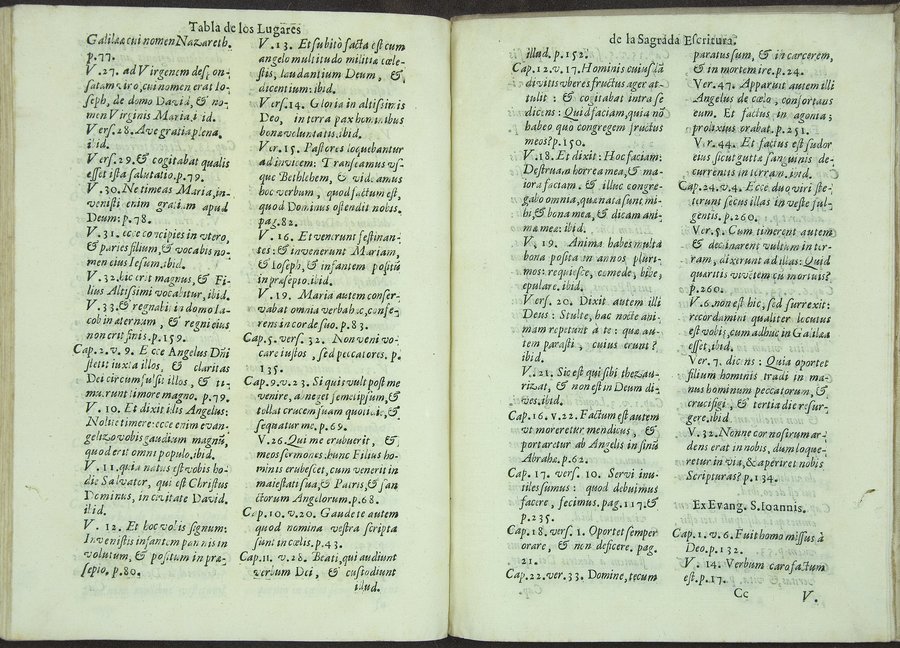 Tabla de los Lugares
Galilææ cui nomen Nazareth.
p.77.
V. 27. ad Virginem despon-
satam viro, cui nomen erat Io-
seph, de domo David, & no-
men Virginis Maria. ibid.
Vers. 28. Ave gratia plena.
ibid.
Vers. 29. & cogitabat qualis
esset ista salutatio. p.79.
V. 30. Ne timeas Maria, in-
venisti enim gratiam apud
Deum: p.78.
V. 31. ecce concipies in vtero,
& paries filium, & vocabis no-
men eius Iesum. ibid.
V. 32. hic erit magnus, & Fi-
lius Altissimi vocabitur, ibid.
V. 33. & regnabit in domo Ia-
cob in æternam, & regni eius
non erit finis. p.159.
Cap. 2. v. 9. Ecce Angelus Dñi
stetit iuxta illos, & claritas
Dei circumfulsit illos, & ti-
muerunt timore magno. p. 79.
V. 10. Et dixit illis Angelus:
Nolite timere: ecce enim evan-
gelizo vobis gaudium magnũ,
quod erit omni populo. ibid.
V. 11. quia natus est vobis ho-
die Salvator, qui est Christus
Dominus, in civitate David.
ibid.
V. 12. Et hoc vobis signum:
Invenietis infantem pannis in
volutum, & positum in præ-
sepio. p.80.
V. 13. Et subitò facta est cum
angelo multitudo militiæ cœle-
stis, laudantium Deum, &
dicentium: ibid.
Vers. 14. Gloria in altissimis
Deo, in terra pax hominibus
bonæ voluntatis. ibid.
Ver. 15. Pastores loquebantur
ad invicem: Transeamus vs-
que Bethlehem, & videamus
hoc verbum, quod factum est,
quod Dominus ostendit nobis.
pag. 82.
V. 16. Et venerunt festinan-
tes: & invenerunt Mariam,
& Ioseph, & infantem positũ
in præsepio. ibid.
V. 19. Maria autem conser-
vabat omnia verba hæc, confe-
rens in corde suo. p. 83.
Cap. 5. vers. 32. Non veni vo-
care iustos, sed peccatores. p.
135.
Cap. 9. v. 23. Si quis vult post me
venire, abneget semetipsum, &
tollat crucem suam quotidie, &
sequatur me. p.69.
V. 26. Qui me erubuerit, &
meos sermones: hunc Filius ho-
minis erubescet, cum venerit in
maiestati sua, & Patris, & san
ctorum Angelorum. p.68.
Cap. 10. v. 20. Gaudete autem
quod nomina vestra scripta
sunt in cœlis. p.43.
Cap. 11. v. 28. Beati, qui audiunt
verbum Dei, & custodiunt
illud.
de la Sagrada Escritura.
illud. p.152.
Cap. 12. v. 17. Hominis cuiusdã
divitis vberes fructus ager at-
tulit: & cogitabat intra se
dicens: Quid faciam, quia nõ
habeo quo congregem fructus
meos? p.150.
V. 18. Et dixit: Hoc faciam:
Destruam horrea mea, & ma-
iora faciam. & illuc congre-
gabo omnia, quæ nata sunt mi-
hi, & bona mea, & dicam ani-
mæ meæ: ibid.
V. 19. Anima habes multa
bona posita in annos pluri-
mos: requiesce, comede, bibe,
epulare. ibid.
Vers. 20. Dixit autem illi
Deus: Stulte, hac nocte ani-
mam repetunt à te: quæ au-
tem parasti, cuius erunt?
ibid.
V. 21. Sic est qui sibi thezau-
rizat, & non est in Deum di-
ves. ibid.
Cap. 16. v. 22. Factum est autem
vt moreretur mendicus, &
portaretur ab Angelis in sinũ
Abrahæ. p.62.
Cap. 17. vers. 10. Servi inu-
tiles sumus: quod debuimus
facere, fecimus. pag. 117. &
p.235.
Cap. 18. vers. 1. Oportet semper
orare, & non deficere. pag.
21.
Cap. 22. ver. 33. Domine, tecum
paratus sum, & in carcerem,
& in mortem ire. p.24.
Ver. 47. Apparuit autem illi
Angelus de cælo, confortans
eum. Et factus in agonia;
prolixius orabat. p.251.
Ver. 44. Et factus est sudor
eius sicut guttæ sanguinis de-
currentis in terram. ibid.
Cap. 24. v. 4. Ecce duo viri ste-
terunt secus illas in veste ful-
gentis. p.260.
Ver. 5. Cum timerent autem
& declinarent vultum in ter-
ram, dixerunt ad illas: Quid
quæritis viventem cũ mortuis?
p.260.
V. 6. non est hic, sed surrexit:
recordamini qualiter locutus
est vobis, cum adhuc in Galilæa
esset. ibid.
Ver. 7. dicens: Quia oportet
filium hominis tradi in ma-
nus hominum peccatorum, &
crucifigi, & tertia die resur-
gere. ibid.
V. 32. Nonne cor nostrum ar-
dens erat in nobis, dum loque-
retur in via, & aperiret nobis
Scripturas? p.134.
Ex Evang. S. Ioannis.
Cap. 1. v. 6. Fuit homo missus à
Deo. p.132.
V. 14. Verbum caro factum
est. p.17.
Cc
V.